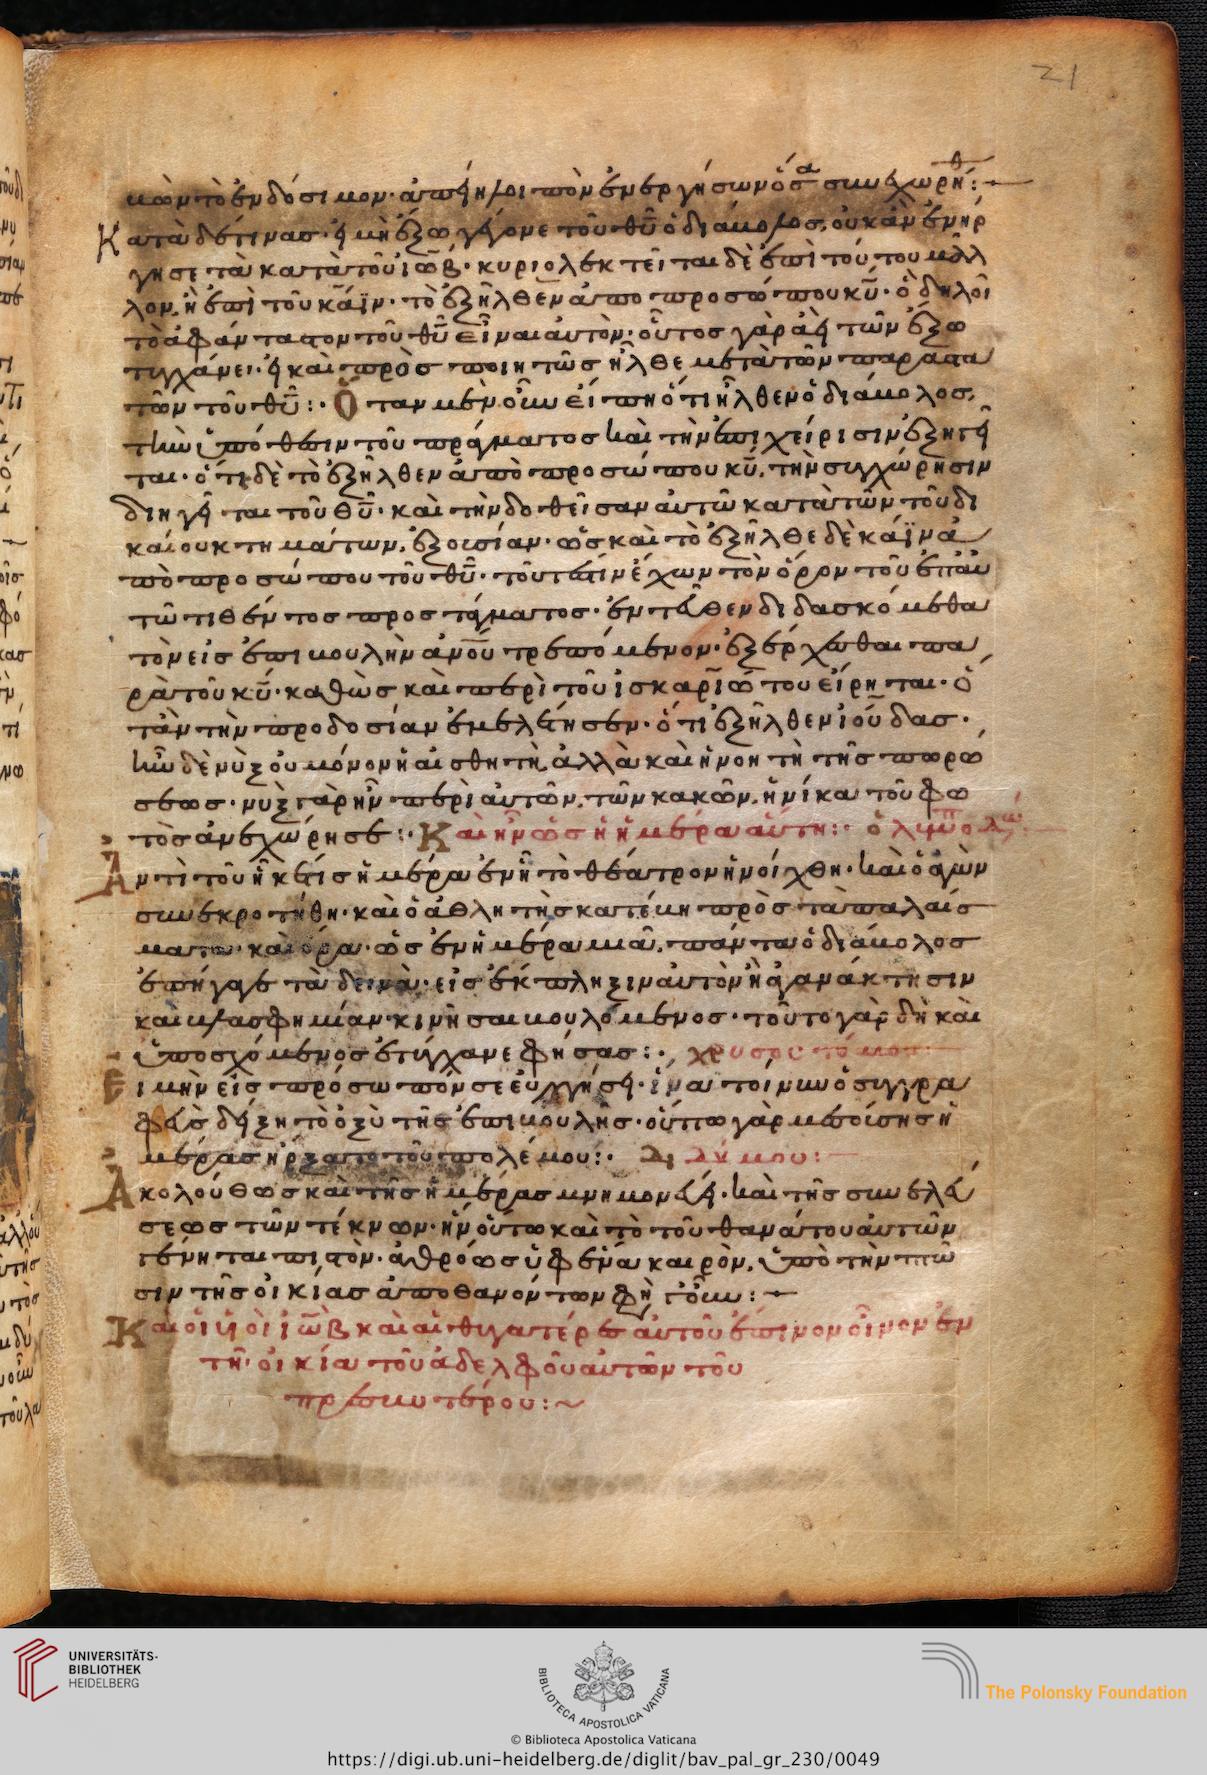 21
βὼν τὸ ἐνδόσιμον· ἀπῄει λοιπὸν ἐνεργήσων ὅσα συνεχωρήθη:
Κατὰ δέ τινας· εἰ μὴ ἔξω γέγονε τοῦ θῦ ὁ διάβολος, οὐκ ἂν ἐνήρ
γησε τὰ κατὰ τοῦ ἰώβ· κυριολεκτεῖται δὲ ἐπὶ τούτου μᾶλ
λον, ἢ ἐπὶ τοῦ κάϊν· τὸ ἐξῆλθεν ἀπο προσώπου κῦ· ὃ δηλοῖ
τὸ ἀφάντατον τοῦ θῦ εἶναι αὐτὸν· οὗτος γὰρ ἀεὶ τῶν ἔξω
τυγχάνει· εἰ καὶ προσποιητῶς ἦλθε μετὰ τῶν παραστα
τῶν τοῦ θῦ:· Ὅταν μὲν οὖν εἴπη ὅτι ἦλθεν ὁ διάβολος,
τὴν ὑπόθεσιν τοῦ πράγματος καὶ τὴν ἐπιχείρισιν ἐξηγεῖ
ται· ὅτι δὲ τὸ ἐξῆλθεν ἀπὸ προσώπου κῦ, τὴν συγχώρησιν
διηγεῖται τοῦ θῦ· καὶ τὴν δοθεῖσαν αὐτῶ κατὰ τῶν τοῦ δι
καίου κτημάτων, ἐξουσίαν· ὡς καὶ τὸ ἐξῆλθε δὲ κάϊν ἀ
πὸ προσώπου τοῦ θῦ· τουτέστιν ἔχων τὸν ὅρον τοῦ ἐπ αὐ
τῶ τιθέντος προστάγματος· ἐντεῦθεν διδασκόμεθα
τὸν εἰς ἐπιβουλὴν ἀνοῦ τρεπόμενον· ἐξέρχεσθαι πα
ρὰ τοῦ κῦ· καθὼς καὶ περὶ τοῦ ἰσκαριώτου εἴρηται· ὅ
τὰν τὴν προδοσίαν ἐμελέτησεν· ὅτι ἐξῆλθεν ἰούδας·
ἦν δὲ νὺξ οὐ μόνον ἡ αἰσθητὴ, ἀλλὰ καὶ ἡ νοητὴ τῆς πωρώ
σεως· νὺξ γὰρ ἦν περὶ αὐτῶν, τῶν κακῶν, ἡνίκα τοῦ φω
τὸς ἀνεχώρησε:· Καὶ ἦν ὡς ἡ ἡμέρα αὕτη:· ὀλυμπιοδώ
Ἀντὶ τοῦ ἧκέ τις ἡμέρα ἐν ᾗ τὸ θέατρον ἠνοίχθη· καὶ ὁ ἀγὼν
συνεκροτήθη· καὶ ὁ ἀθλητὴς κατέβη πρὸς τὰ παλαίσ
ματα· καὶ ὅρα· ὡς ἐν ἡμέρα μιᾶ, πάντα ὁ διάβολος
ἐπήγαγε τὰ δεινὰ· εἰς ἔκπληξιν αὐτὸν ἢ ἀγανάκτησιν
καὶ βλασφημίαν· κινῆσαι βουλόμενος· τοῦτο γὰρ δὴ καὶ
ὑποσχόμενος ἐτύγχανε φήσας:· χρυσοστόμου:
Εἰ μὴν εἰς πρόσωπόν σε εὐλογήσει· ἵνα τοίνυν ὁ συγγρα
φεὺς δείξη τὸ ὀξὺ τῆς ἐπιβουλῆς· οὔπω γὰρ μεσούσης ἡ
μέρας ἤρξατο τοῦ πολέμου:· διδύμου:
Ἀκολούθως καὶ τῆς ἡμέρας μνημονεύει· καὶ τῆς συνελεύ
σεως τῶν τέκνων· ἵν οὕτω καὶ τὸ τοῦ θανάτου αὐτῶν
γένηται πιστὸν· ἀθρόως ὑφ ἕνα καιρὸν, ὑπὸ τὴν πτῶ
σιν τῆς οἰκίας ἀποθανόντων φησὶ γοῦν:
Καὶ οἱ υἱοὶ ἰὼβ καὶ αἱ θυγατέρες αὐτοῦ ἔπινον οἶνον ἐν
τῆ οἰκία τοῦ ἀδελφοῦ αὐτῶν τοῦ
πρεσβυτέρου:~
UNIVERSITÄTS-
BIBLIOTHEK
HEIDELBERG
BIBLIOTECA APOSTOLICA VATICANA
The Polonsky Foundation
© Biblioteca Apostolica Vaticana
https://digi.ub.uni-heidelberg.de/diglit/bav_pal_gr_230/0049